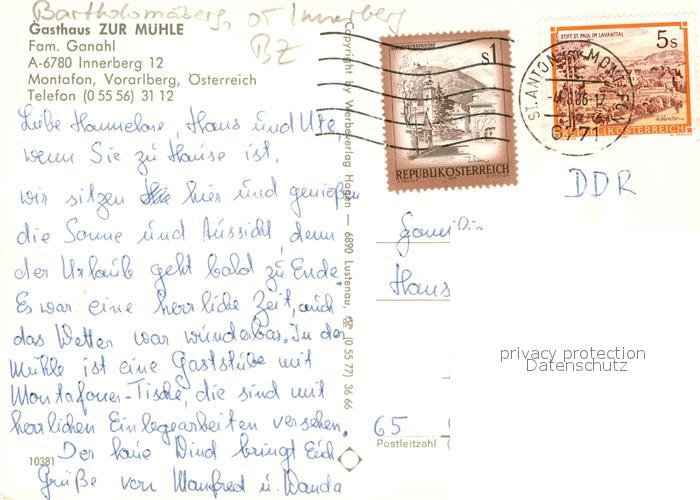 Bartholomäberg OT Innerberg
BZ
Gasthaus ZUR MÜHLE
Fam. Ganahl
A-6780 Innerberg 12
Montafon, Vorarlberg, Österreich
Telefon (0 55 56) 31 12
Liebe Hannelore, Hans und Ute,
wenn Sie zu Hause ist,
wir sitzen hier und genießen
die Sonne und Aussicht, denn
der Urlaub geht bald zu Ende.
Es war eine herrliche Zeit, auch
das Wetter war wunderbar. In der
Mühle ist eine Gaststube mit
Montafoner-Tische, die sind mit
herrlichen Einlegearbeiten versehen.
Der laue Wind bringt Euch
Grüße von Manfred u. Wanda
10381
Copyright by Werbeverlag Hagen — 6890 Lustenau, ☎ (0 55 77) 36 66
s1
REPUBLIK ÖSTERREICH
STIFT ST. PAUL IM LAVANTTAL
5s
REPUBLIK ÖSTERREICH
ST. ANTON MONTAFON
86-17
6771
DDR
Hans
65
Postleitzahl
privacy protection
Datenschutz